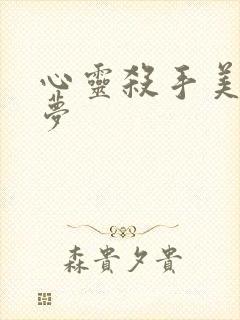 心靈殺手美
夢
森貴夕貴